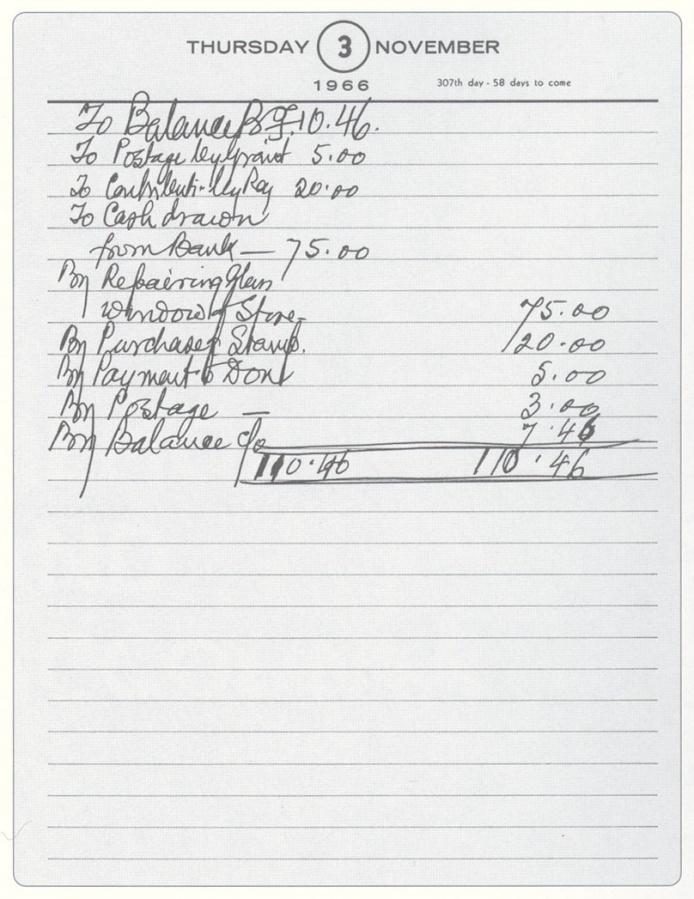 THURSDAY 3 NOVEMBER
1966 307th day - 58 days to come
To Balance B/F 10.46.
To Postage by Grant 5.00
To Contributi- by Ray 20.00
To Cash drawn
from Bank — 75.00
By Repairing Glass
Window of Store- 75.00
By Purchase of Stamp. 20.00
By Payment to Dont 5.00
By Postage — 3.00
By Balance c/o 7.46
110.46 110.46